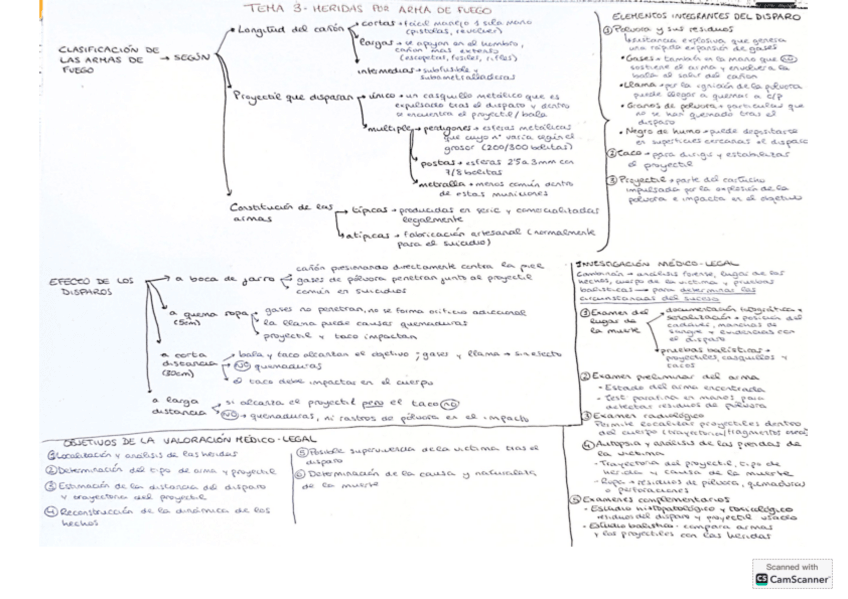 TEMA 3- HERIDAS POR ARMA DE FUEGO
CLASIFICACIÓN DE
LAS ARMAS DE
FUEGO
→ SEGÚN
Longitud del cañón
cortas → fácil manejo y sola mano
(pistolas, revolver)
largas → se apoyan en el hombro,
cañón más extenso
(escopetas, fusiles, rifles)
intermedias → subfusible y
subametralladoras
Proyectil que disparan
único → un casquillo metálico que es
expulsado tras el disparo y dentro
se encuentra el proyectil/bala
multiple
perdigones → esferas metálicas
que cuyo nº varía según el
grosor (200/300 bolitas)
postas → esferas 2'5 a 3mm con
7/8 bolitas
metralla → menos común dentro
de estas municiones
Constitución de las
armas
típicas → producidas en serie y comercializadas
legalmente
atípicas → fabricación artesanal (normalmente
para el suicidio)
ELEMENTOS INTEGRANTES DEL DISPARO
① Pólvora y sus residuos
sustancia explosiva que genera
una rápida expansión de gases
• Gases → también en la mano que NO
sostiene el arma y envuelve la
bala al salir del cañón
• Llama → por la ignición de la pólvora
puede llegar a quemar a c/p
• Granos de pólvora → partículas que
no se han quemado tras el
disparo
• Negro de humo → puede depositarse
en superficies cercanas al disparo
② Taco → para dirigir y estabilizar
el proyectil
③ Proyectil → parte del cartucho
impulsada por la explosión de la
pólvora e impacta en el objetivo
EFECTO DE LOS
DISPAROS
a boca de jarro
cañón presionando directamente contra la piel
gases de pólvora penetran junto al proyectil
común en suicidios
a quema ropa
(5cm)
gases no penetran, no se forma orificio adicional
la llama puede causar quemaduras
proyectil y taco impactan
a corta
distancia
(50cm)
bala y taco alcanzan el objetivo; gases y llama → sin efecto
NO quemaduras
el taco debe impactar en el cuerpo
a larga
distancia
si alcanza el proyectil pero el taco NO
NO → quemaduras, ni rastros de pólvora en el impacto
INVESTIGACIÓN MÉDICO-LEGAL
Combinan → análisis forense, lugar de los
hechos, cuerpo de la víctima y pruebas
balísticas → para determinar las
circunstancias del suceso
① Examen del
lugar de
la muerte
documentación fotográfica y
señalización → posición del
cadáver, manchas de
sangre y evidencias con
el disparo
pruebas balísticas →
proyectiles, casquillos y
tacos
② Examen preliminar del arma
- Estado del arma encontrada
- Test parafina en manos para
detectar residuos de pólvora
③ Examen radiológico
Permite localizar proyectiles dentro
del cuerpo (trayectoria/fragmentos
④ Autopsia y análisis de las prendas de
la víctima
- Trayectoria del proyectil, tipo de
herida y causa de la muerte
- Ropa → residuos de pólvora, quemaduras
o perforaciones
⑤ Exámenes complementarios
• Estudio histopatológico y toxicológico
residuos del disparo y proyectil usado
• Estudio balístico → compara armas
y los proyectiles con las heridas
OBJETIVOS DE LA VALORACIÓN MÉDICO-LEGAL
① Localización y análisis de las heridas
② Determinación del tipo de arma y proyectil
③ Estimación de la distancia del disparo
y trayectoria del proyectil
④ Reconstrucción de la dinámica de los
hechos
⑤ Posible supervivencia de la víctima tras el
disparo
⑥ Determinación de la causa y naturaleza
de la muerte
Scanned with
CS CamScanner